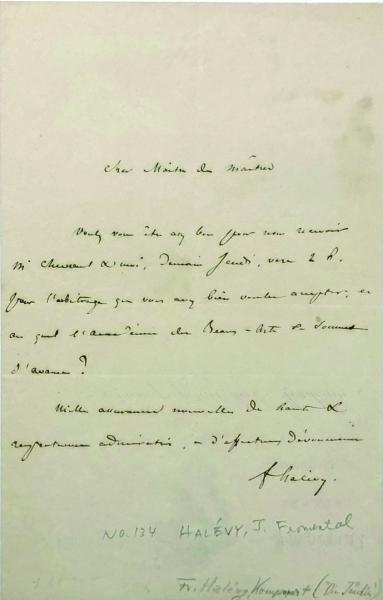 Cher Maître des maîtres
Voulez vous être assez bon pour nous recevoir
Mr Chevreul & moi, demain Jeudi, vers 2 h.
pour l'arbitrage que vous avez bien voulu accepter, et
au quel l'académie des Beaux-Arts se soumet
d'avance?
Mille assurances nouvelles de haute &
respectueuse admiration, et d'affectueux dévouement
f halévy.
NO. 134 HALÉVY, J. Fromental
Fr. Halévy, Komponist ("Die Jüdin")